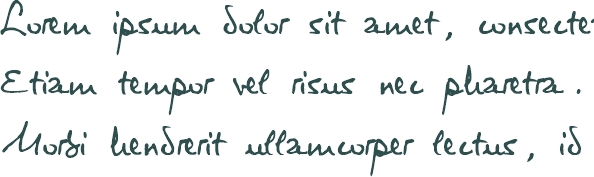 Lorem ipsum dolor sit amet, consecte
Etiam tempor vel risus nec pharetra.
Morbi hendrerit ullamcorper lectus, id